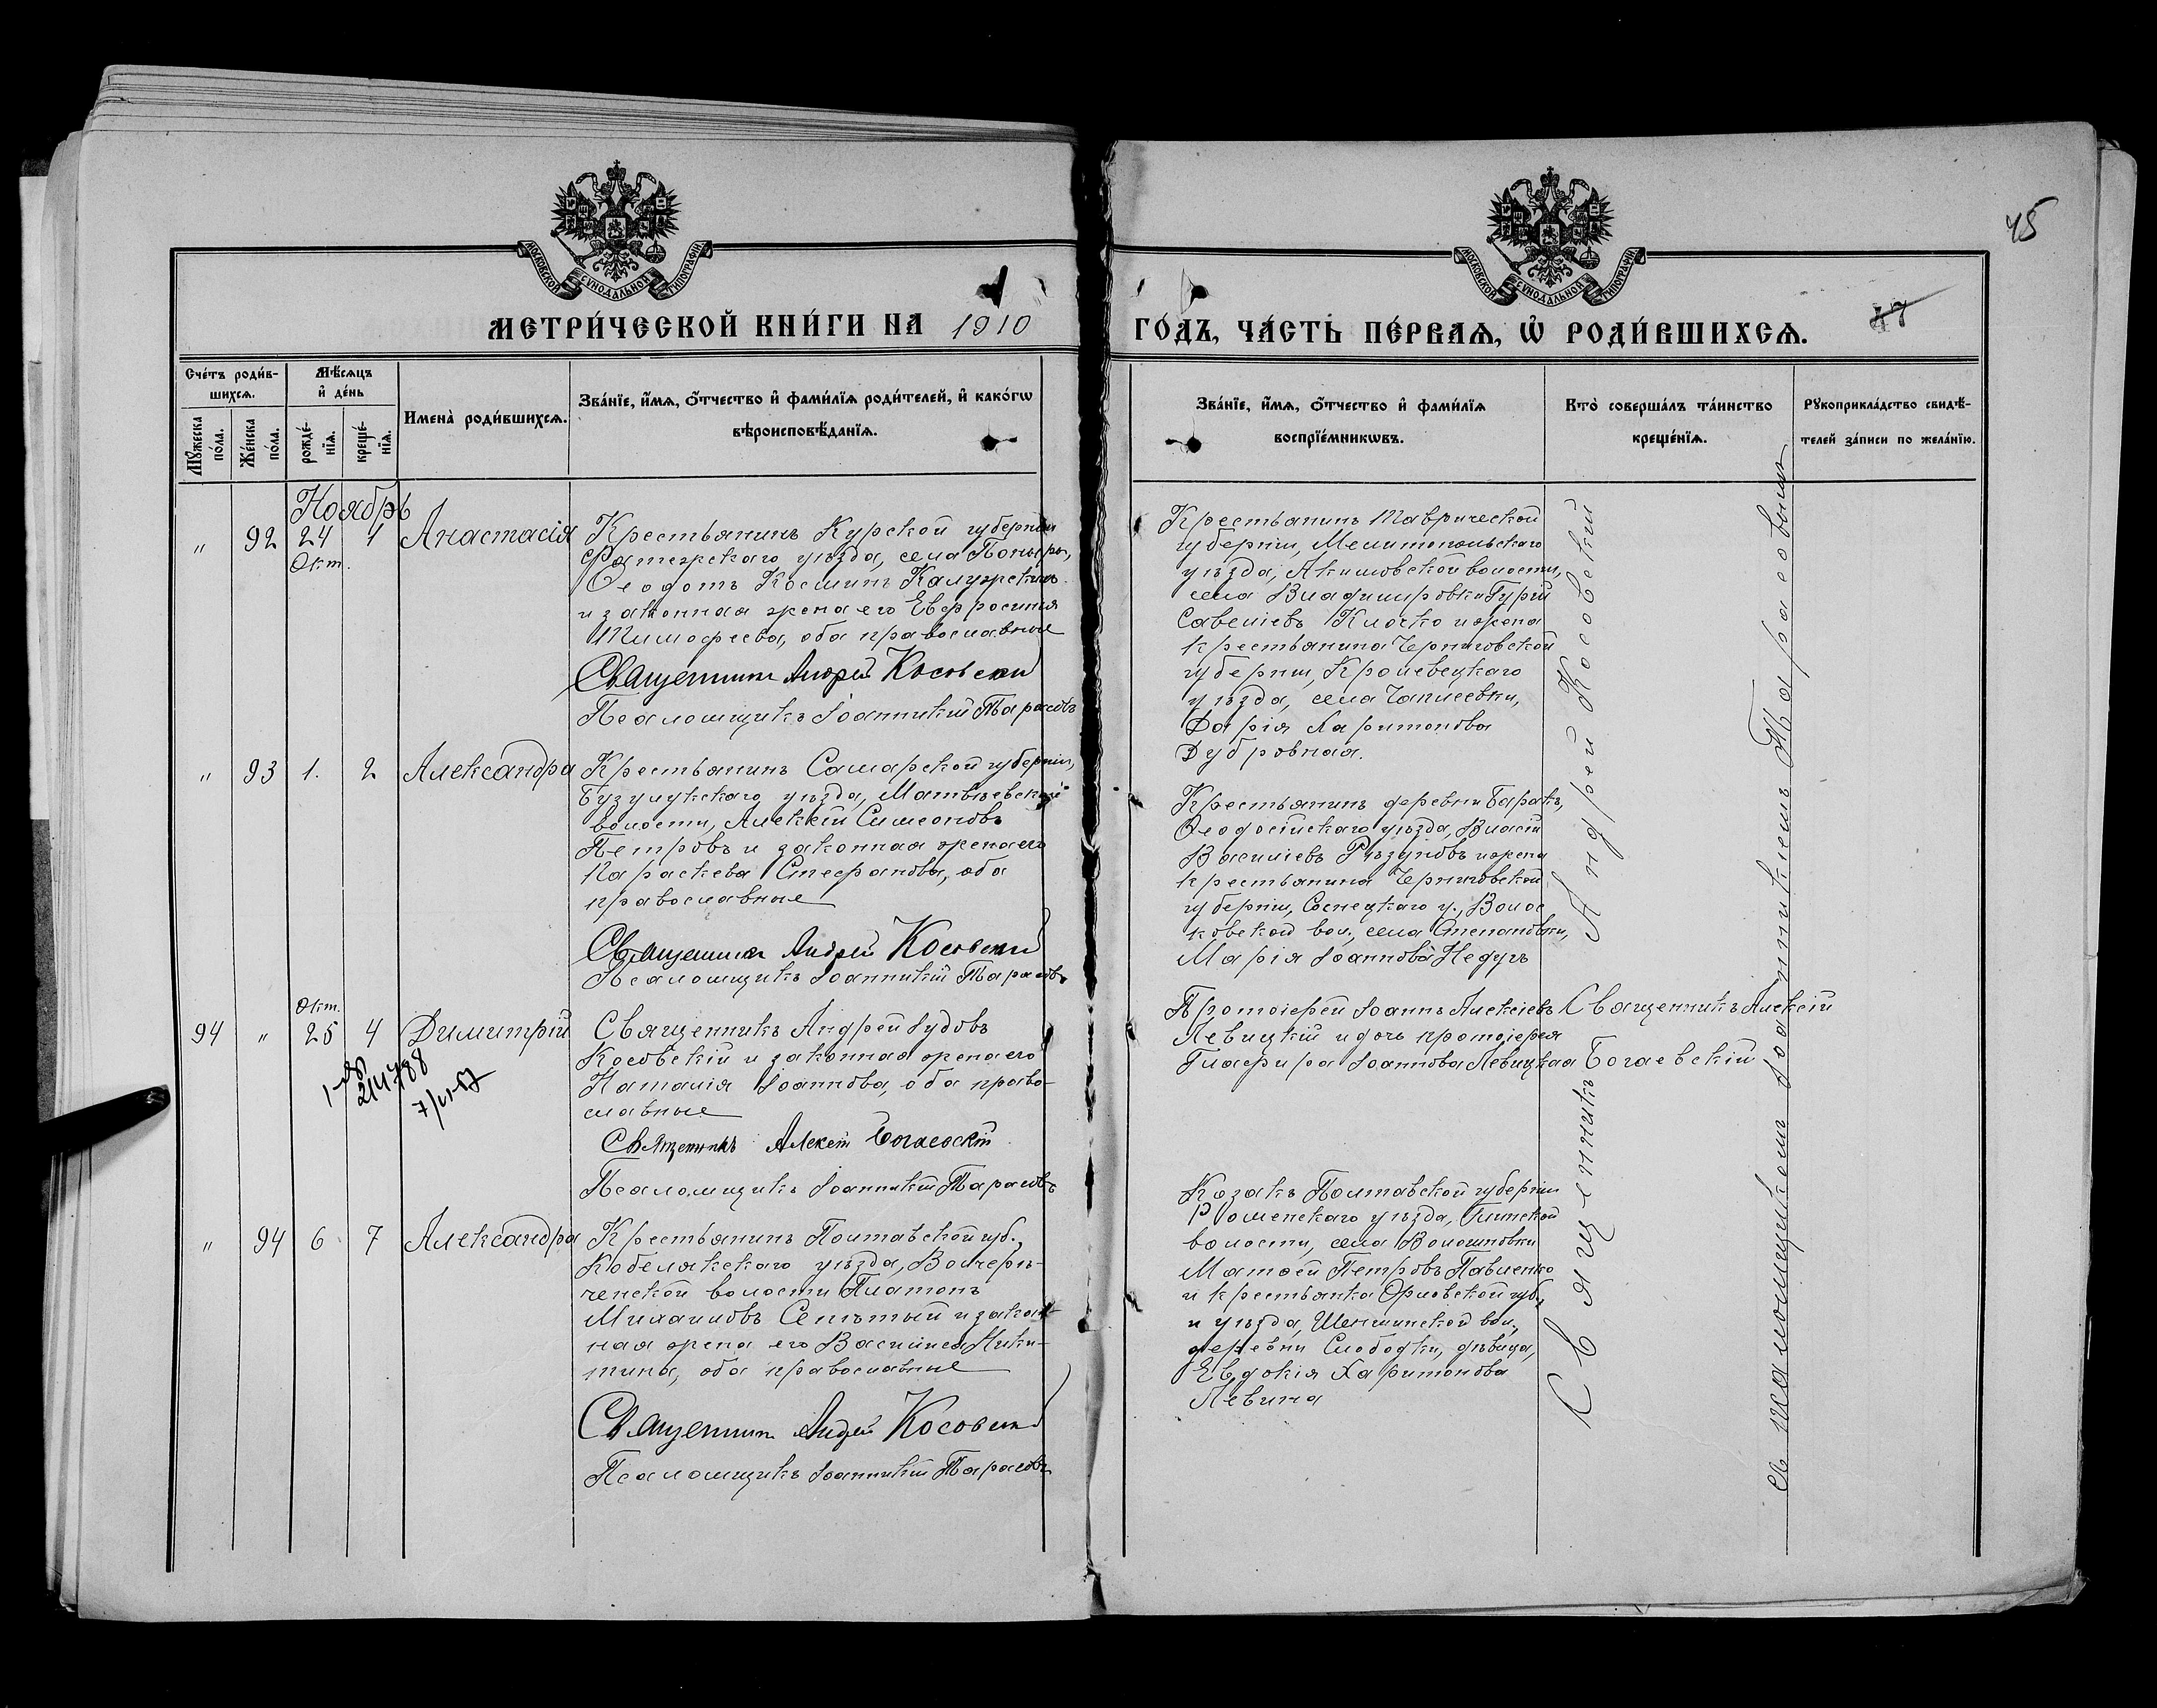 45
МОСКОВСКОЙ СѴНОДАЛЬНОЙ ТИПОГРАФІИ
МОСКОВСКОЙ СѴНОДАЛЬНОЙ ТИПОГРАФІИ
МЕТРИ́ЧЕСКОЙ КНИ́ГИ НА 1910
ГО́ДЪ, ЧА́СТЬ ПЕ́РВАѦ, Ѡ҆ РОДИ́ВШИХСѦ.
47
Сче́тъ роди́в-
шихсѧ.
Мꙋ́жеска
по́ла.
Же́нска
по́ла.
Мѣ́сѧцъ
и҆ де́нь
рожде́-
нїѧ.
креще́-
нїѧ.
Имена̀ роди́вшихсѧ.
Зва́нїе, и҆́мѧ, ѻ҆́тчество и҆ фами́лїѧ роди́телей, и҆ како́гѡ
вѣроисповѣ́данїѧ.
Зва́нїе, и҆́мѧ, ѻ҆́тчество и҆ фами́лїѧ
воспрїе́мникѡвъ.
Кто̀ соверша́лъ та́инство
креще́нїѧ.
Рꙋкоприкла́дство свидѣ́-
телей за́писи по жела́нїю.
Ноябрь
" 92 24 1 Анастасія
Окт.
Крестьянинъ Курской губерніи
Фатежскаго уѣзда, села Поныръ,
Ѳеодотъ Косминъ Калужскихъ
и законная жена его Евфросинія
Тимофеева, оба православные
Священникъ Андрей Косовский
Псаломщикъ Іоанникій Тарасовъ
Крестьянинъ Таврической
губерніи, Мелитопольскаго
уѣзда, Акимовской волости,
села Владимировки Гурій
Савеліевъ Клочко и жена
крестьянина Черниговской
губерніи, Кролевецкаго
уѣзда, села Чаплеевки,
Дарія Харитонова
Дубровная.
" 93 1. 2 Александра
Крестьянинъ Самарской губерніи,
Бузулукскаго уѣзда, Матвѣевской
волости, Алексій Симеоновъ
Петровъ и законная жена его
Параскева Стефанова, оба
православные
Священникъ Андрей Косовский
Псаломщикъ Іоанникій Тарасовъ
Крестьянинъ деревни Баракъ,
Ѳеодосійскаго уѣзда, Власій
Василіевъ Рѣзуновъ и жена
крестьянина Черниговской
губерніи, Сосницкаго у., Волос
ковской вол., села Степановки,
Марія Іоаннова Недугъ
Окт.
94 " 25 4 Димитрій
Священникъ Андрей Іудовъ
Косовскій и законная жена его
Наталія Іоаннова, оба право-
славные
Священникъ Алексій Богаевскій
Псаломщикъ Іоанникій Тарасовъ
Протоіерей Іоаннъ Алексіевъ
Левицкій и дочь протоіерея
Глафира Іоаннова Левицкая
Священникъ Алексій
Богаевскій
" 94 6 7 Александра
Крестьянинъ Полтавской губ.,
Кобелякскаго уѣзда,
волости Платонъ
Михаиловъ и закон-
ная жена его Василиса Ники-
тина, оба православные
Священникъ Андрей Косовский
Псаломщикъ Іоанникій Тарасовъ
Козакъ Полтавской губерніи
Роменскаго уѣзда, Глинской
волости, села Волошновки
Матѳей Петровъ Павленко
и крестьянка Орловской губ.,
и уѣзда, вол.,
деревни Слободки, дѣвица,
Евдокія Харитонова
Левина
Священникъ Андрей Косовскій
съ псаломщикомъ Іоанникіемъ Тарасовымъ